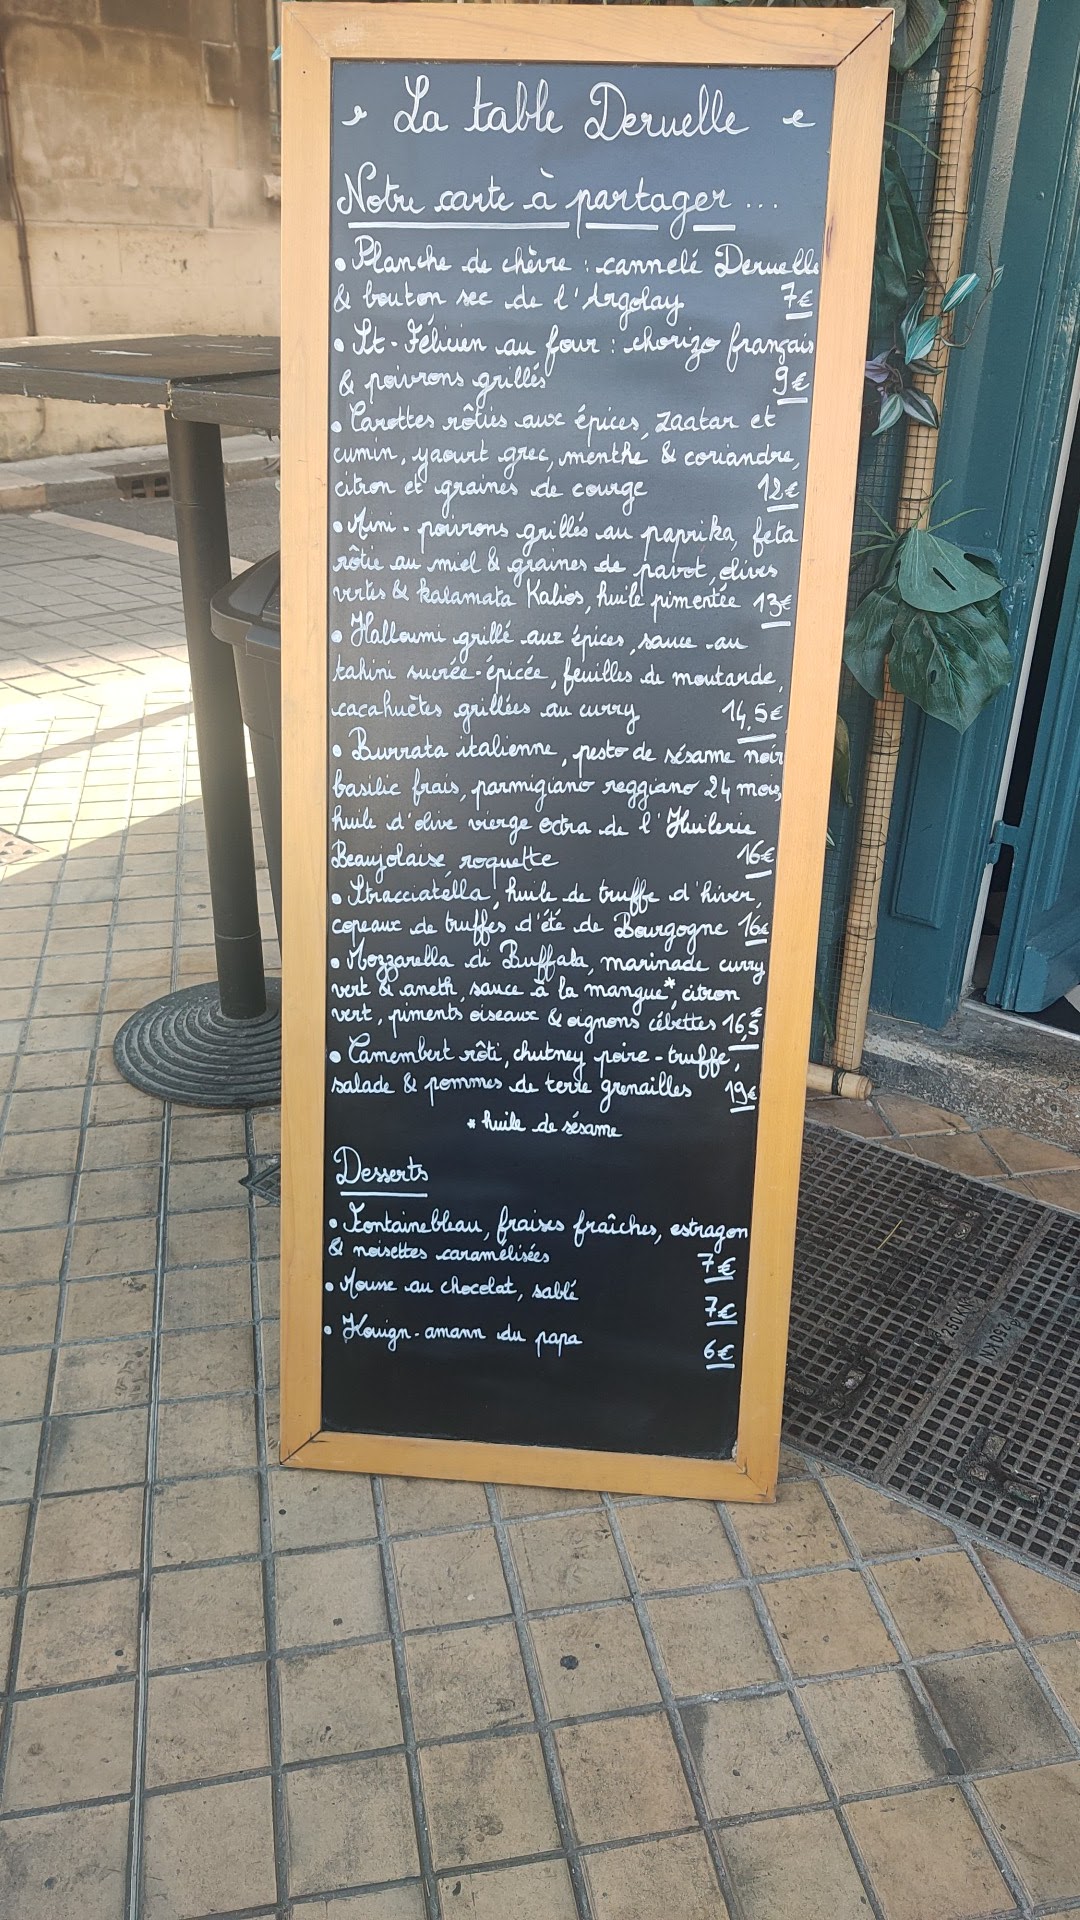 La table Deruelle
Notre carte à partager ...
• Planche de chèvre : cannelé Deruelle
& bouton sec de l'Argolay 7€
• St-Félicien au four : chorizo français
& poivrons grillés 9€
• Carottes rôties aux épices, zaatar et
cumin, yaourt grec, menthe & coriandre,
citron et graines de courge 12€
• Mini-poivrons grillés au paprika, feta
rôtie au miel & graines de pavot, olives
vertes & kalamata Kalios, huile pimentée 13€
• Halloumi grillé aux épices, sauce au
tahini sucrée-épicée, feuilles de moutarde,
cacahuètes grillées au curry 14,5€
• Burrata italienne, pesto de sésame noir
basilic frais, parmigiano reggiano 24 mois,
huile d'olive vierge extra de l'Huilerie
Beaujolaise, roquette 16€
• Stracciatella, huile de truffe d'hiver,
copeaux de truffes d'été de Bourgogne 16€
• Mozzarella di Buffala, marinade curry
vert & aneth, sauce à la mangue*, citron
vert, piments oiseaux & oignons cébettes 16,5€
• Camembert rôti, chutney poire-truffe,
salade & pommes de terre grenailles 19€
* huile de sésame
Desserts
• Fontainebleau, fraises fraîches, estragon
& noisettes caramélisées 7€
• Mousse au chocolat, sablé 7€
• Kouign-amann du papa 6€
250KN
250KN